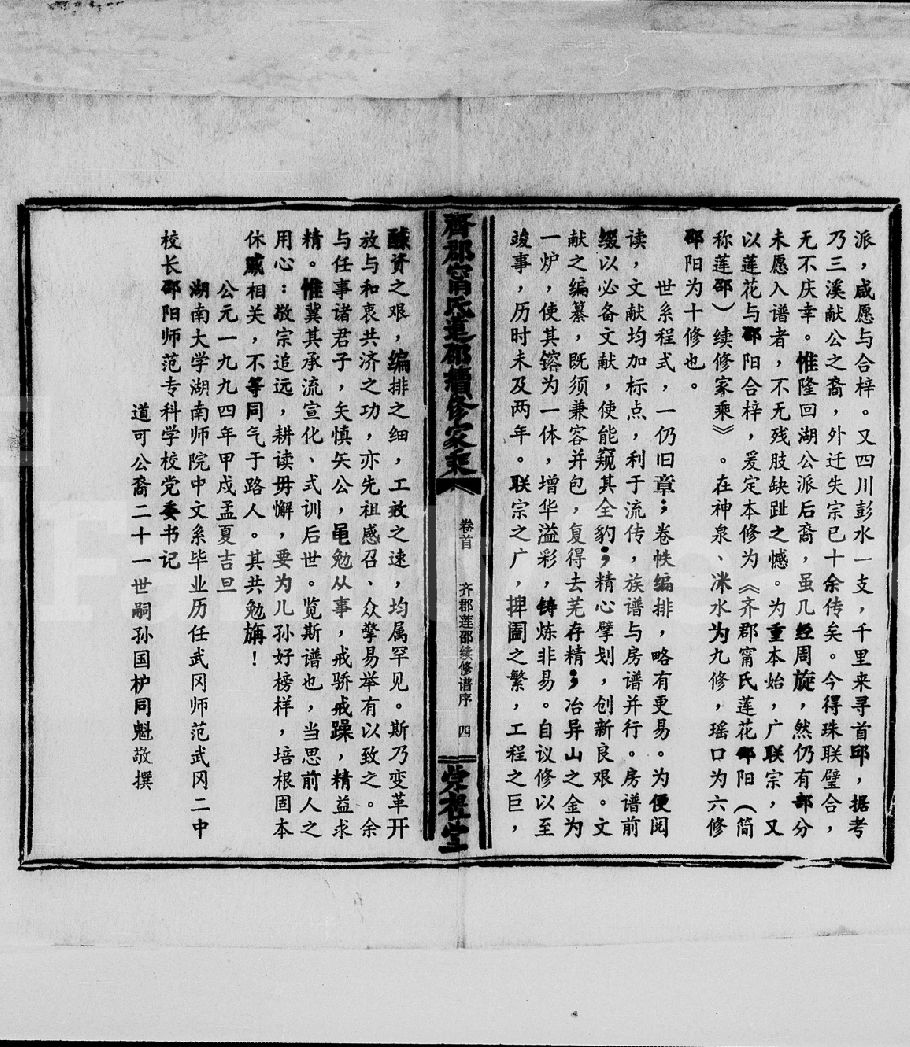 派，咸愿与合梓。又四川彭水一支，千里来寻首邱，据考
乃三溪献公之裔，外迁失宗已十余传矣。今得珠联璧合，
无不庆幸。惟隆回湖公派后裔，虽几经周旋，然仍有部分
未愿入谱者，不无残肢缺趾之憾。为重本始，广联宗，又
以莲花与邵阳合梓，爰定本修为《齐郡甯氏莲花邵阳（简
称莲邵）续修家乘》。在神泉、洣水为九修，瑶口为六修
邵阳为十修也。
世系程式，一仍旧章；卷帙编排，略有更易。为便阅
读，文献均加标点，利于流传，族谱与房谱并行。房谱前
缀以必备文献，使能窥其全豹；精心擘划，创新良艰。文
献之编纂，既须兼容并包，复得去芜存精；冶异山之金为
一炉，使其镕为一体，增华溢彩，铸炼非易。自议修以至
竣事，历时未及两年。联宗之广，捭阖之繁，工程之巨，
齊郡甯氏蓮邵續修家乘
卷首
齐郡莲邵续修谱序
四
崇礼堂
醵资之艰，编排之细，工效之速，均属罕见。斯乃变革开
放与和衷共济之功，亦先祖感召、众擎易举有以致之。余
与任事诸君子，矢慎矢公，黾勉从事，戒骄戒躁，精益求
精。惟冀其承流宣化、式训后世。览斯谱也，当思前人之
用心：敬宗追远，耕读毋懈，要为儿孙好榜样，培根固本
休戚相关，不等同气于路人。其共勉旃！
公元一九九四年甲戌孟夏吉旦
湖南大学湖南师院中文系毕业历任武冈师范武冈二中
校长邵阳师范专科学校党委书记
道可公裔二十一世嗣孙国栌同魁敬撰